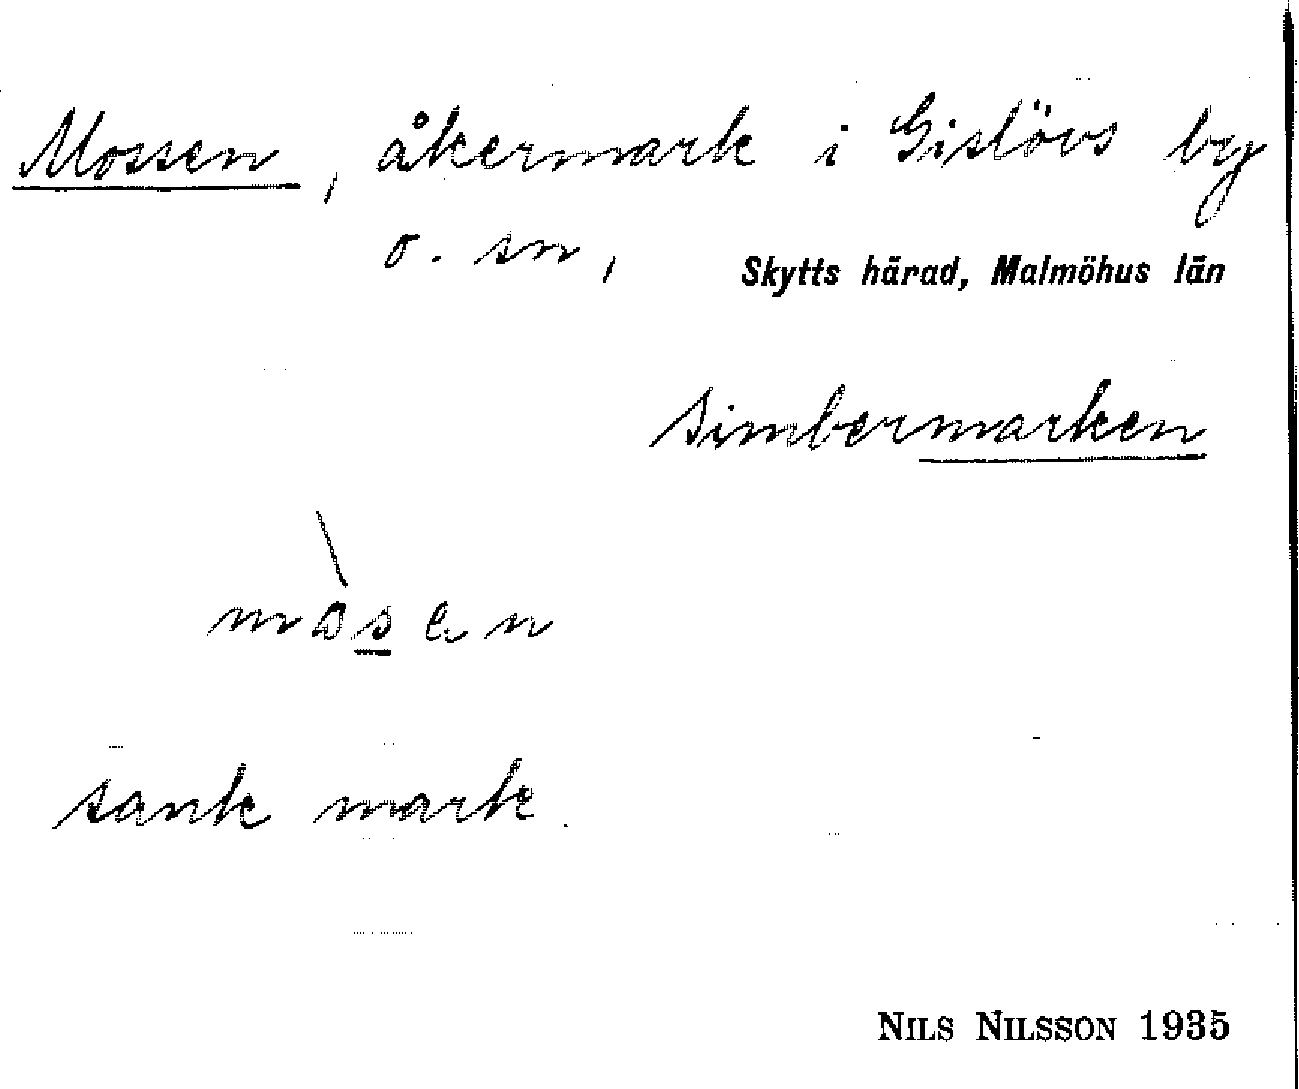 Mossen, åkermark i Gislövs by
o. sn, Skytts härad, Malmöhus län
Simbermarken
mòsen
sank mark.
NILS NILSSON 1935